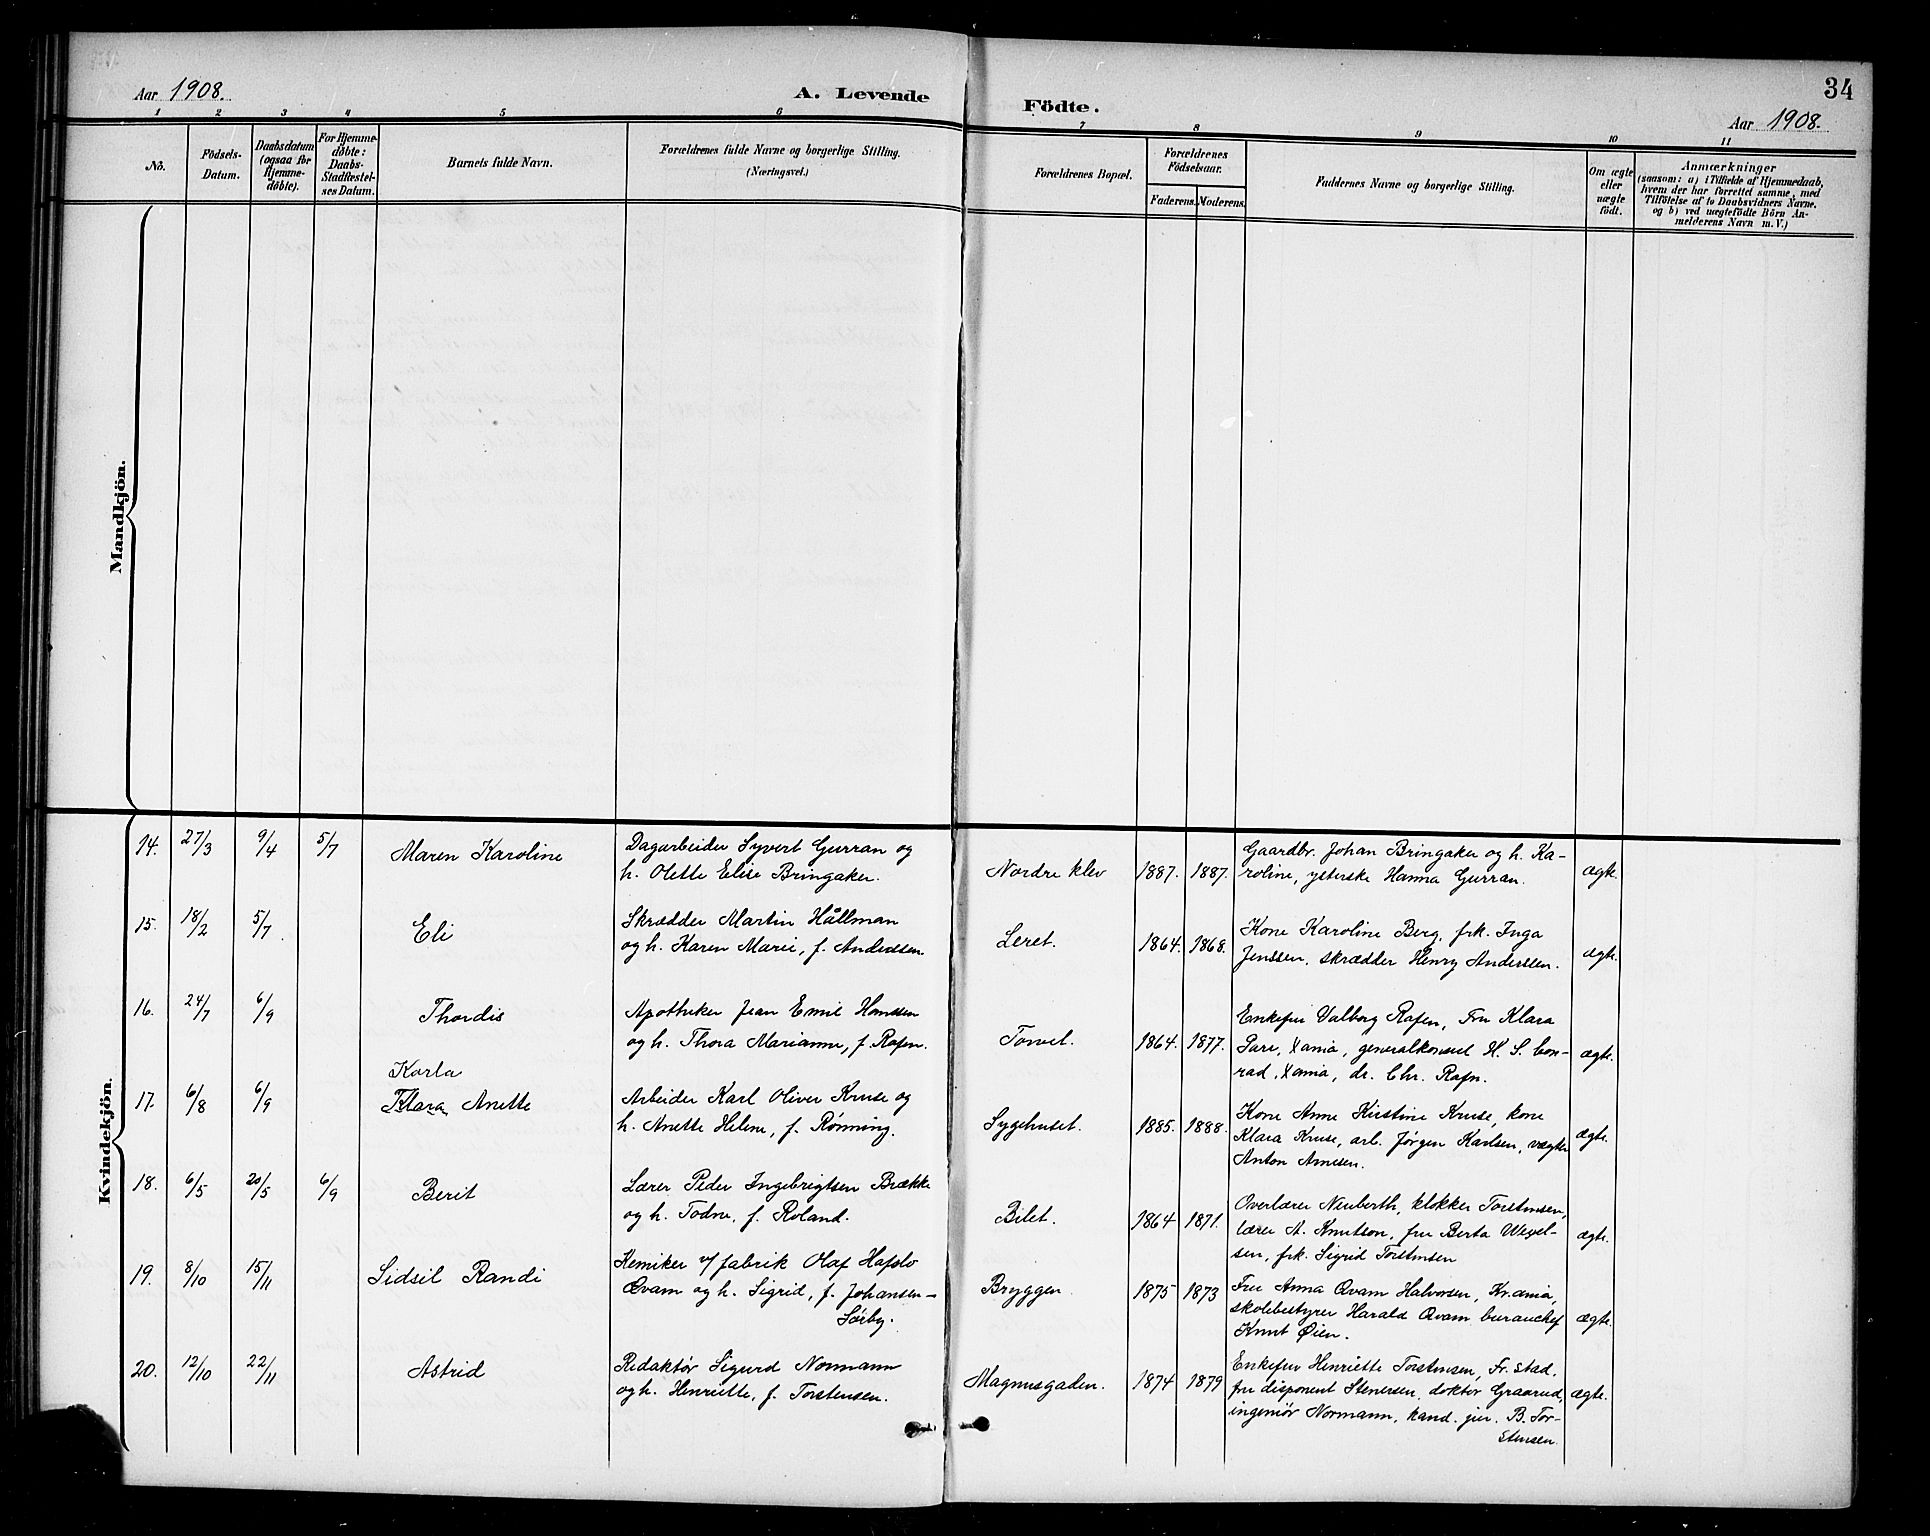 34
Aar 1908.
A. Levende
Födte.
Aar 1908.
1 2 3 4 5 6 7 8 9 10 11
No.
Födsels-
Datum.
Daabsdatum
(ogsaa for
Hjemme-
döbte).
For Hjemme-
döbte:
Daabs-
Stadfæstel-
ses Datum.
Barnets fulde Navn.
Forældrenes fulde Navne og borgerlige Stilling.
(Næringsvei.)
Forældrenes Bopæl.
Forældrenes
Födselsaar.
Faderens. Moderens.
Faddernes Navne og borgerlige Stilling.
Om ægte
eller
uægte
födt.
Anmærkninger
(saasom: a) i Tilfælde af Hjemmedaab,
hvem der har forrettet samme, med
Tilföielse af to Daabsvidners Navne,
og b) ved uægtefödte Börn An-
melderens Navn m. V.)
Mandkjön.
Kvindekjön.
14. 27/3 9/4 5/7 Maren Karoline
Dagarbeider Syvert Gurran og
h. Olette Elise Bringaker.
Nordre klev 1887. 1887.
Gaardbr. Johan Bringaker og h. Ka-
roline, ysterske Hanna Gurran.
ægte.
15. 18/2 5/7. Eli
Skrædder Martin Hållman
og h. Karen Marie, f. Anderssen
Leret. 1864. 1868.
Kone Karoline Berg, frk. Inga
Jenssen, skrædder Henry Anderssen.
ægte.
16. 24/7 6/9 Thordis
Apotheker Jean Emil Hanssen
og h. Thora Marianne, f. Rafen.
Torvet. 1864. 1877.
Enkefru Valborg Rafen, Fru Klara
Pare, Xania, generalkonsul H. S. Con-
rad, Xania, dr. Chr. Rafn.
ægte.
17. 6/8 6/9 Karla
Klara Anette
Arbeider Karl Oliver Kruse og
h. Anette Helene, f. Rønning.
Sygehuset. 1885. 1888.
Kone Anne Kirstine Kruse, kone
Klara Kruse, arb. Jørgen Karlsen, vægter
Anton Arnesen.
ægte.
18. 6/5 20/5 6/9 Berit
Lærer Peder Ingebrigtsen Brække
og h. Todne, f. Roland.
Bilet. 1864 1871.
Overlærer Neuberth, klokker Torstensen,
lærer A. Knutson, fru Berta Wexel-
sen, frk. Sigrid Torstensen
ægte.
19. 8/10 15/11 Sidsil Randi
Kemiker v/ fabrik Olaf Hafslo
Qvam og h. Sigrid, f. Johansen-
Sørby.
Bryggen 1875 1873
Fru Anna Qvam Halvorsen, Kr.ania,
skolebestyrer Harald Qvam burauchef
Knut Øien.
ægte.
20. 12/10 22/11 Astrid
Redaktør Sigurd Normann
og h. Henriette, f. Torstensen.
Magnusgaden. 1874 1879
Enkefru Henriette Torstensen, Fr.stad,
fru disponent Stenersen, doktor Graarud,
ingeniør Normann, kand. jur. B. Tor-
stensen.
ægte.